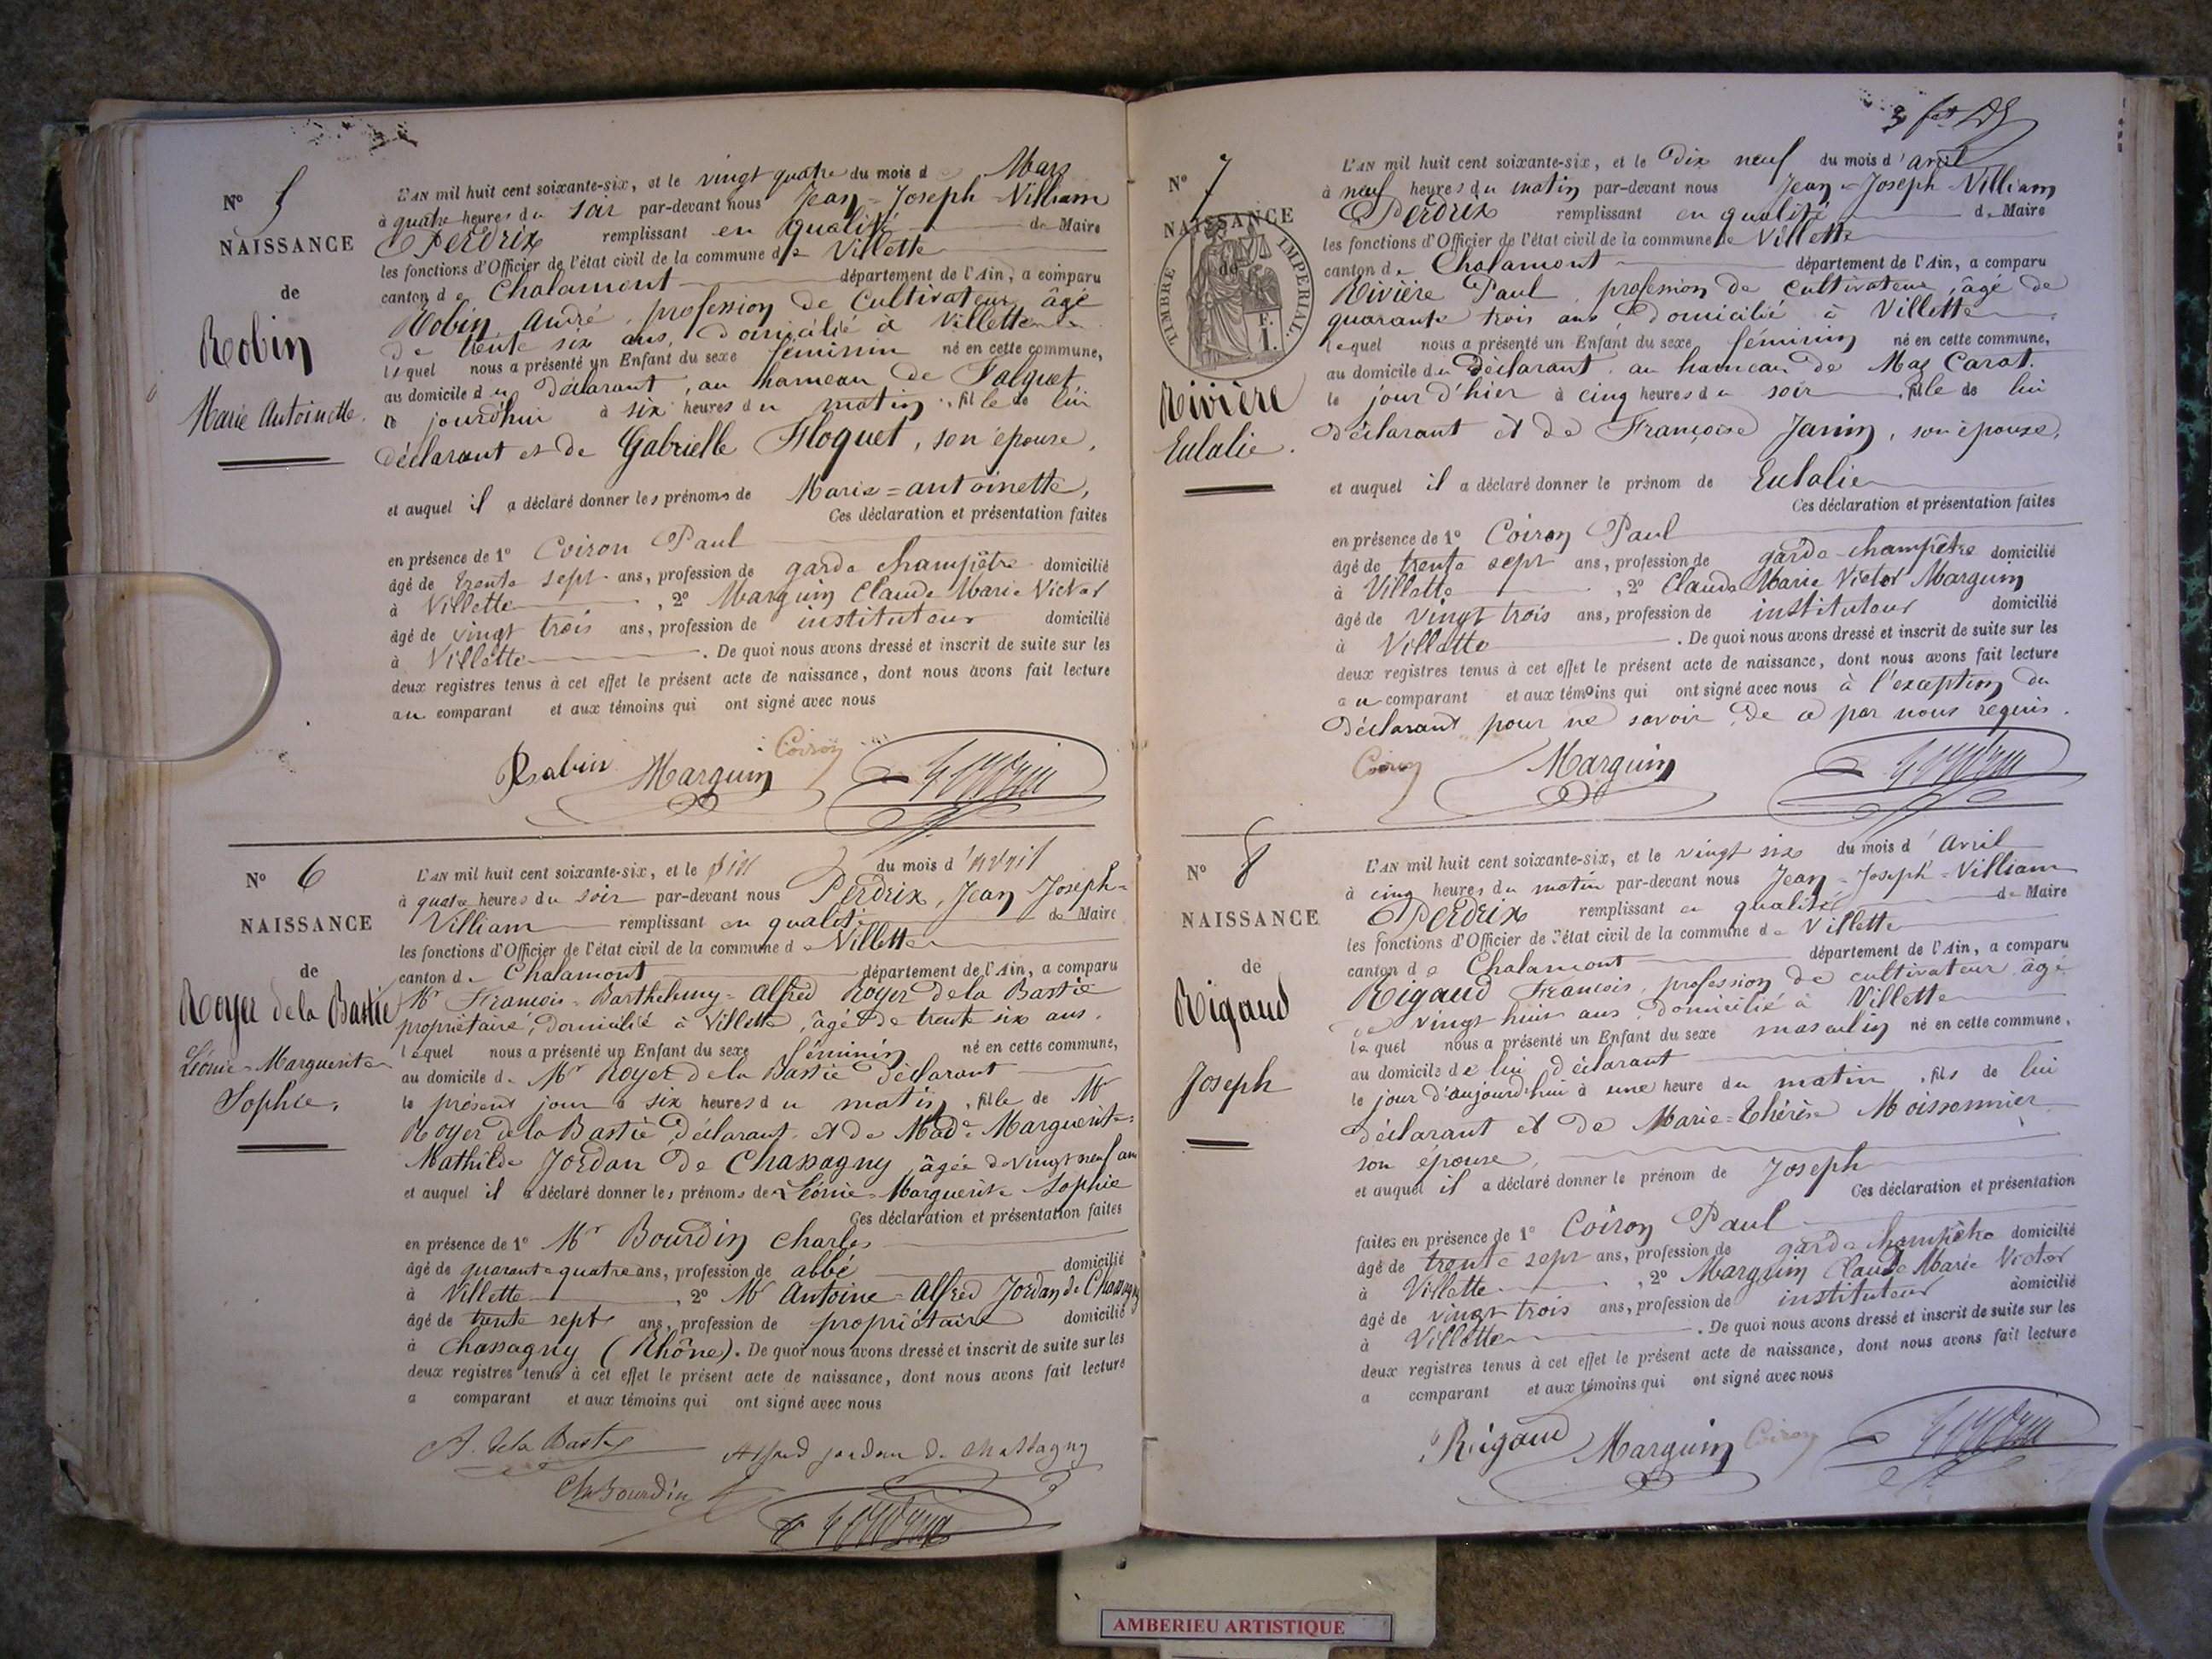 N° 5
NAISSANCE
de
Robin
Marie Antoinette.
L'AN mil huit cent soixante-six, et le vingt quatre du mois d Mars
à quatre heures du soir par-devant nous Jean-Joseph-Villiam
Perdrix remplissant en qualité de Maire
les fonctions d'Officier de l'état civil de la commune de Villette
canton de Chalamont département de l'Ain, a comparu
Robin André, profession de Cultivateur, âgé
de trente six ans, domicilié à Villette
lequel nous a présenté un Enfant du sexe féminin né en cette commune,
au domicile du déclarant, au hameau de
jourd'hui à six heures du matin, fille de lui
déclarant et de Gabrielle Floquet, son épouse,
et auquel il a déclaré donner les prénoms de Marie=antoinette,
Ces déclaration et présentation faites
en présence de 1° Coiron Paul
âgé de trente sept ans, profession de garde champêtre domicilié
à Villette, 2° Marguin Claude Marie Victor
âgé de vingt trois ans, profession de instituteur domicilié
à Villette. De quoi nous avons dressé et inscrit de suite sur les
deux registres tenus à cet effet le présent acte de naissance, dont nous avons fait lecture
au comparant et aux témoins qui ont signé avec nous
Robin Marguin Coiron
N° 6
NAISSANCE
de
Royer de la Bastie
Léonie-Marguerite
Sophie,
L'AN mil huit cent soixante-six, et le dix du mois d'avril
à quatre heures du soir par-devant nous Perdrix, Jean Joseph=
Villiam remplissant en qualité de Maire
les fonctions d'Officier de l'état civil de la commune de Villette
canton de Chalamont département de l'Ain, a comparu
Mr François-Barthelemy-Alfred Royer de la Bastie
propriétaire, domicilié à Villette, âgé de trente six ans,
lequel nous a présenté un Enfant du sexe féminin né en cette commune,
au domicile de Mr Royer de la Bastie déclarant
le présent jour à six heures du matin, fille de Mr
Royer de la Bastie déclarant et de Made Marguerite=
Mathilde Jordan de Chassagny âgée de vingt neuf ans
et auquel il a déclaré donner les prénoms de Léonie-Marguerite Sophie
Ces déclaration et présentation faites
en présence de 1° Mr Bourdin Charles
âgé de quarante quatre ans, profession de abbé domicilié
à Villette, 2° Mr Antoine-Alfred Jordan de Chassagny
âgé de trente sept ans, profession de propriétaire domicilié
à Chassagny (Rhône). De quoi nous avons dressé et inscrit de suite sur les
deux registres tenus à cet effet le présent acte de naissance, dont nous avons fait lecture
a comparant et aux témoins qui ont signé avec nous
A. de la Bastie Alfred jordan de chassagny
Ch Bourdin
N° 7
NAISSANCE
de
TIMBRE IMPERIAL.
Rivière
Eulalie.
L'AN mil huit cent soixante-six, et le Dix neuf du mois d'avril
à neuf heures du matin par-devant nous Jean-Joseph-Villiam
Perdrix remplissant en qualité de Maire
les fonctions d'Officier de l'état civil de la commune de Villette
canton de Chalamont département de l'Ain, a comparu
Rivière Paul, profession de cultivateur, âgé de
quarante trois ans domicilié à Villette
lequel nous a présenté un Enfant du sexe féminin né en cette commune,
au domicile du déclarant au hameau de Mas Carat.
le jour d'hier à cinq heures du soir, fille de lui
déclarant et de Françoise Janin, son épouse,
et auquel il a déclaré donner le prénom de Eulalie
Ces déclaration et présentation faites
en présence de 1° Coiron Paul
âgé de trente sept ans, profession de garde-champêtre domicilié
à Villette, 2° Claude Marie Victor Marguin
âgé de vingt trois ans, profession de instituteur domicilié
à Villette. De quoi nous avons dressé et inscrit de suite sur les
deux registres tenus à cet effet le présent acte de naissance, dont nous avons fait lecture
au comparant et aux témoins qui ont signé avec nous à l'exception du
déclarant pour ne savoir, de ce par nous requis.
Coiron Marguin
N° 8
NAISSANCE
de
Rigaud
Joseph
L'AN mil huit cent soixante-six, et le vingt six du mois d'Avril
à cinq heures du matin par-devant nous Jean-Joseph-Villiam
Perdrix remplissant en qualité de Maire
les fonctions d'Officier de l'état civil de la commune de Villette
canton de Chalamont département de l'Ain, a comparu
Rigaud François, profession de cultivateur âgé
de vingt huit ans domicilié à Villette
lequel nous a présenté un Enfant du sexe masculin né en cette commune,
au domicile de lui déclarant
le jour d'aujourd'hui à une heure du matin, fils de lui
déclarant et de Marie=Thérèse Moissonnier
son épouse,
et auquel il a déclaré donner le prénom de Joseph
Ces déclaration et présentation
faites en présence de 1° Coiron Paul
âgé de trente sept ans, profession de garde champêtre domicilié
à Villette, 2° Marguin Claude Marie Victor
âgé de vingt trois ans, profession de instituteur domicilié
à Villette. De quoi nous avons dressé et inscrit de suite sur les
deux registres tenus à cet effet le présent acte de naissance, dont nous avons fait lecture
a comparant et aux témoins qui ont signé avec nous
Rigaud Marguin Coiron
AMBERIEU ARTISTIQUE